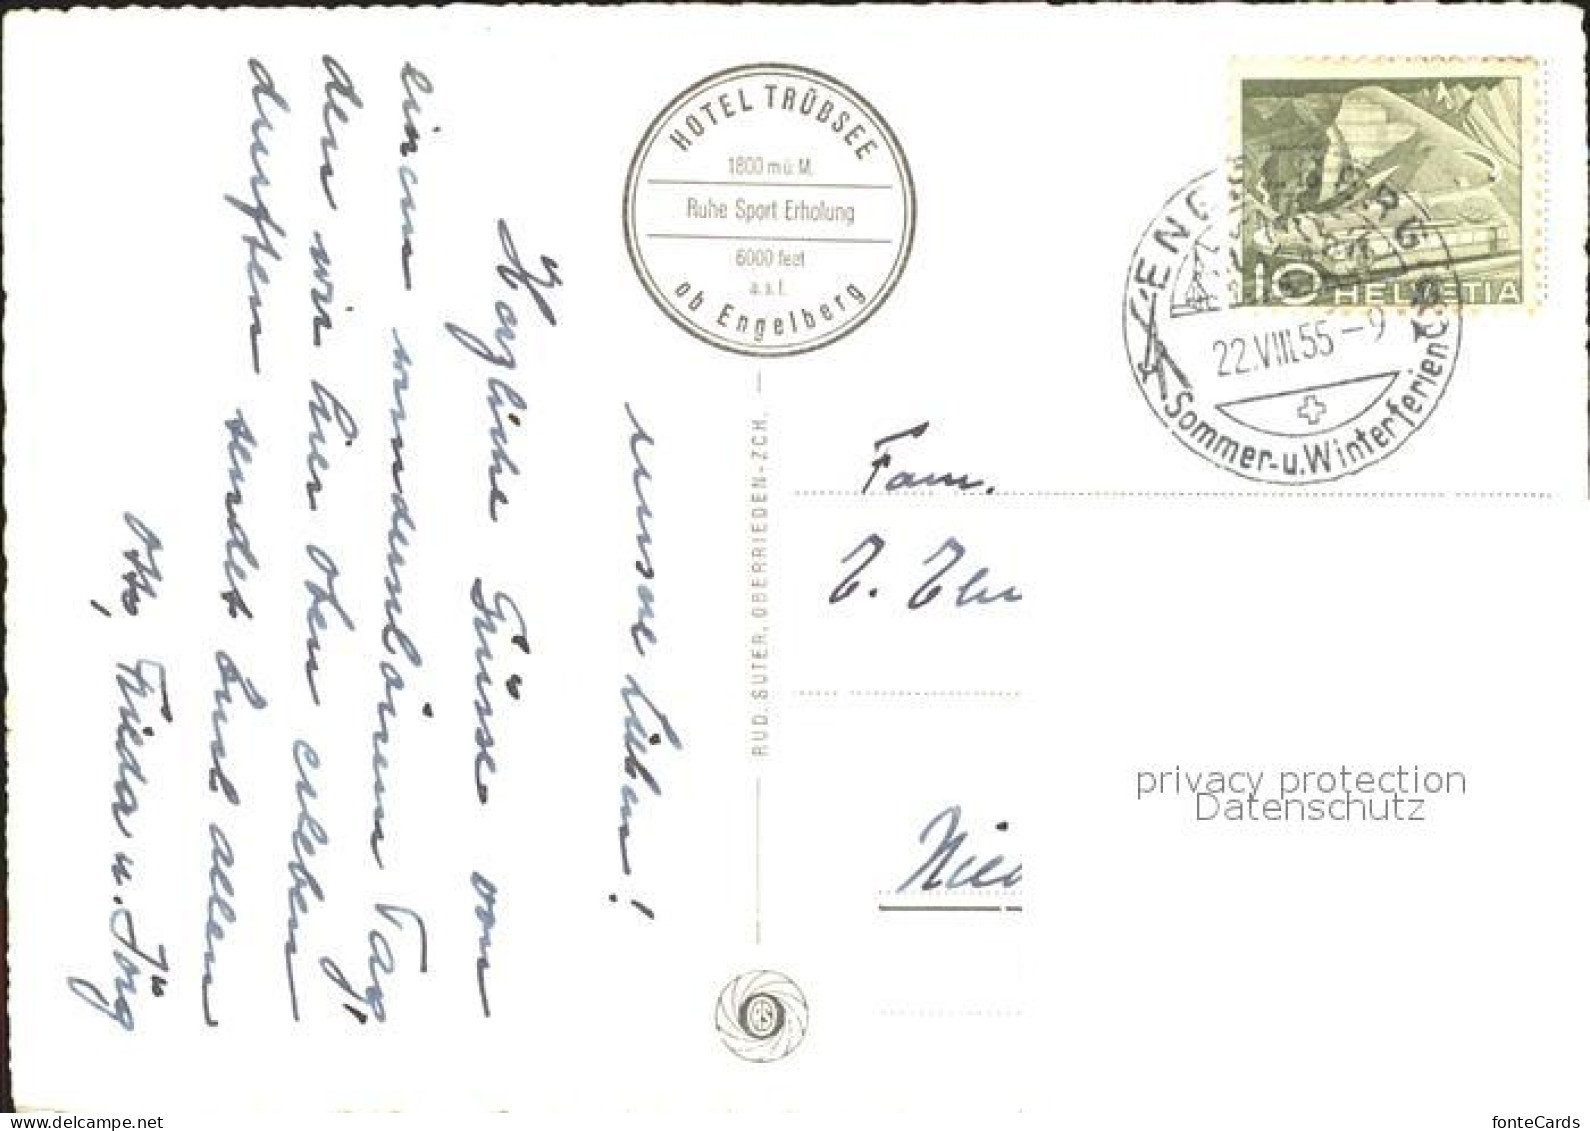 unsre Lieben!
Herzliche Grüsse von
einem wundersch önen Tag
den wir hier oben erleben
durften sendet Euch allen
Otto, Frieda u. Jörg
HOTEL TRÜBSEE
1800 m ü. M.
Ruhe Sport Erholung
6000 feet
a.s.l.
ob Engelberg
RUD. SUTER, OBERRIEDEN-ZCH.
10 HELVETIA
ENGELBERG
22.VIII.55-9
Sommer-u.Winterferien
Fam.
privacy protection
Datenschutz
www.delcampe.net
fonteCards